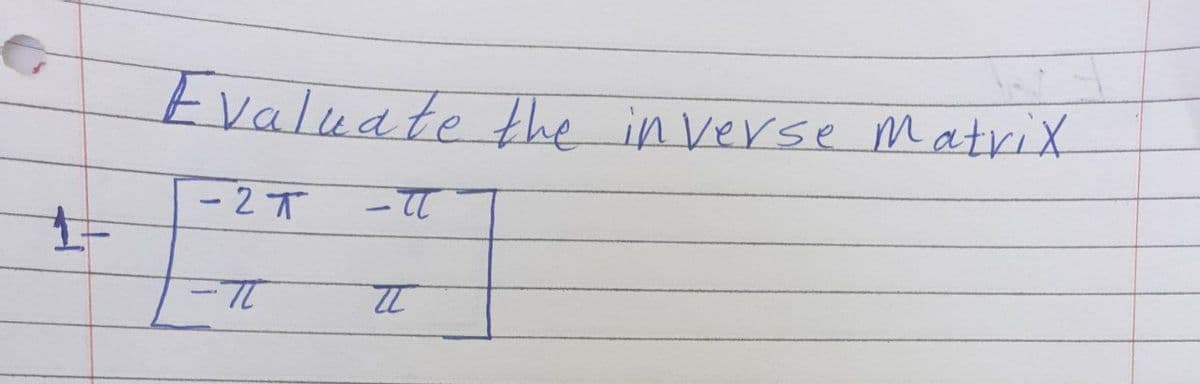 Evaluate the inverse Matrix
1- [ -2π -π
-π π ]